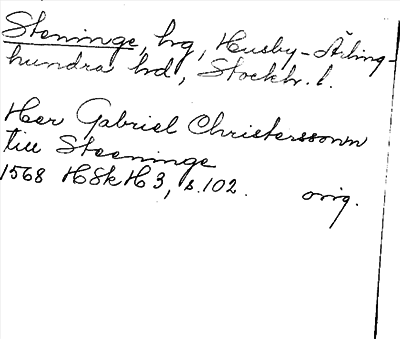 Steninge, hg, Husby-Ärling-
hundra hd, Stockh. l.
Herr Gabriel Christerssonn
till Steeninge
1568 HSkH3, s. 102. orig.